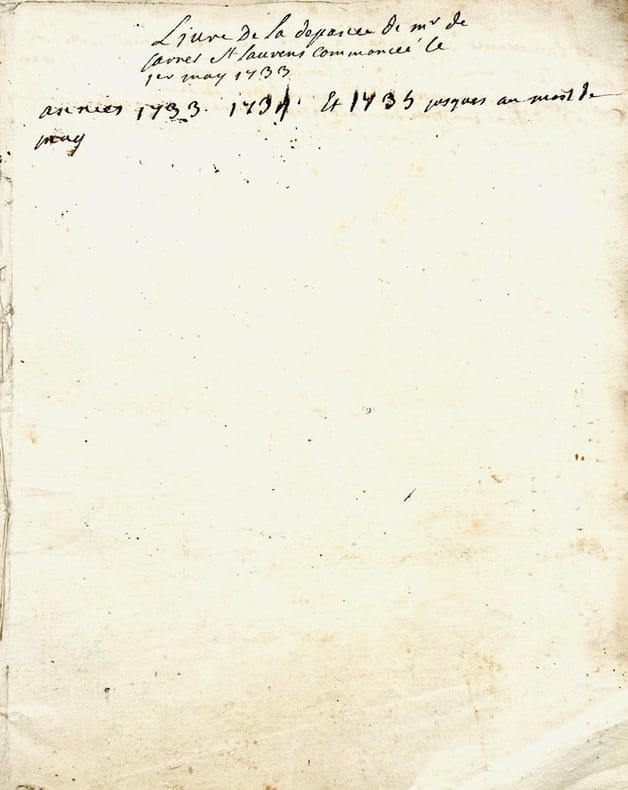 Liure De La depance De mr de
Carnet St Laurens commancee le
1er may 1733
annees 1733. 1734. Et 1735 jusques au mois de
may